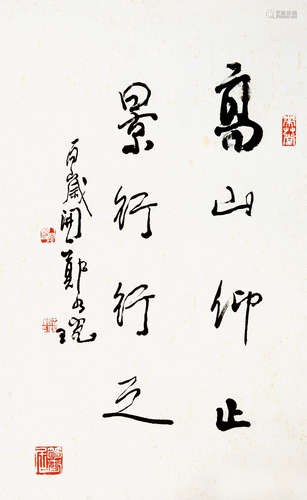 高山仰止
景行行之
百歲開一鄭乃珖